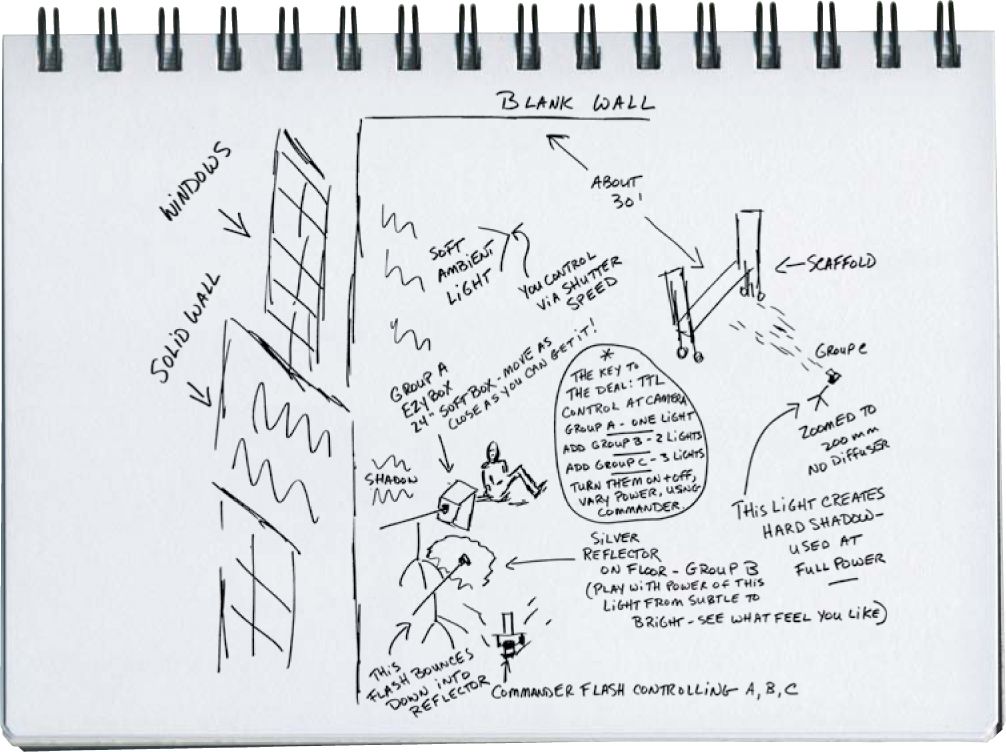 BLANK WALL
WINDOWS
ABOUT
30'
SOFT
AMBIENT
LIGHT
YOU CONTROL
VIA SHUTTER
SPEED
SCAFFOLD
SOLID WALL
GROUP C
GROUP A
EZYBOX
24" SOFT BOX - MOVE AS
CLOSE AS YOU CAN GET IT!
*
THE KEY TO
THE DEAL: TTL
CONTROL AT CAMERA
GROUP A - ONE LIGHT
ADD GROUP B - 2 LIGHTS
ADD GROUP C - 3 LIGHTS
TURN THEM ON + OFF,
VARY POWER, USING
COMMANDER.
ZOOMED TO
200mm
NO DIFFUSER
SHADOW
THIS LIGHT CREATES
HARD SHADOW -
USED AT
FULL POWER
SILVER
REFLECTOR
ON FLOOR - GROUP B
(PLAY WITH POWER OF THIS
LIGHT FROM SUBTLE TO
BRIGHT - SEE WHAT FEEL YOU LIKE)
THIS
FLASH BOUNCES
DOWN INTO
REFLECTOR
COMMANDER FLASH CONTROLLING A, B, C